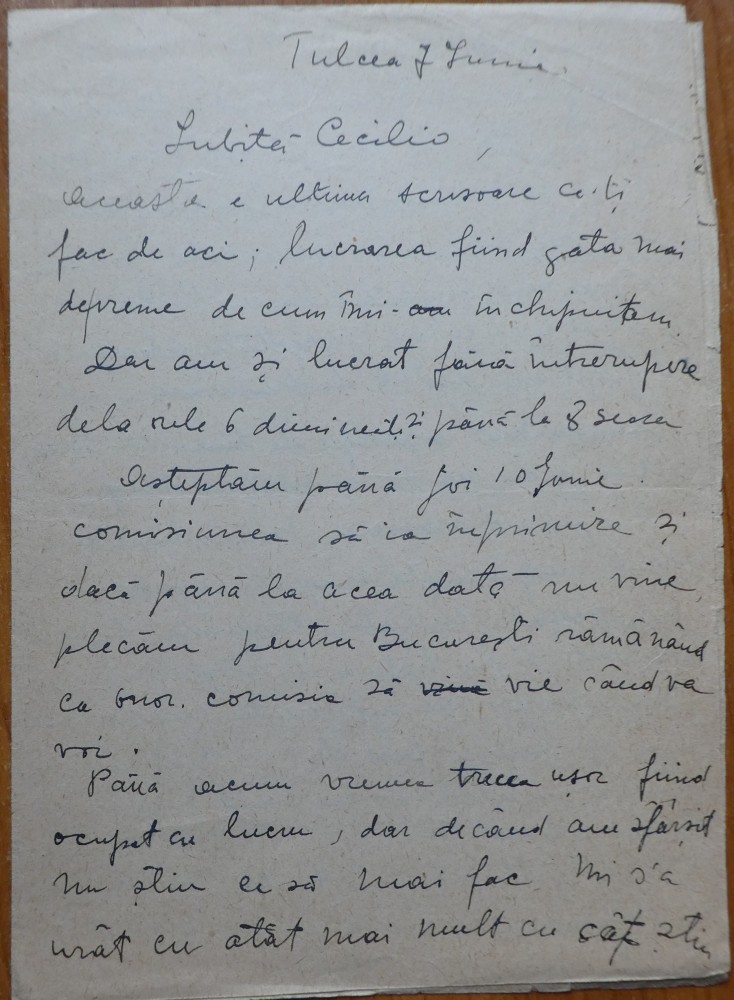 Tulcea 7 Iunie.
Iubită Cecilio,
aceasta e ultima scrisoare ce-ți
fac de aci; lucrarea fiind gata mai
depreme de cum îmi-am închipuitem.
Dar am și lucrat fără întrerupere
dela orele 6 dimineții și până la 8 seara
Așteptăm până Joi 10 Iunie.
comisiunea să ia în primire și
dacă până la acea dată nu vine,
plecăm pentru București rămânând
ca onor. comisia să vină vie când va
voi.
Până acum vremea trecea ușor fiind
ocupat cu lucru, dar decând am sfârșit
nu știu ce să mai fac. Mi s'a
urât cu atât mai mult cu cât știu